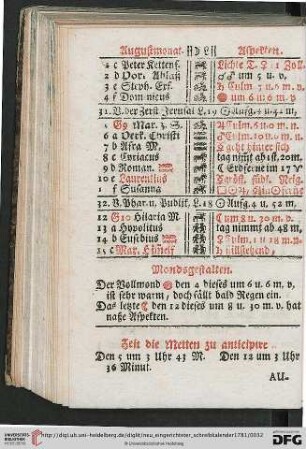 Augustmonat. Aspekten.
1 c Peter Kettenf. Lichte T.
2 d Por. Ablaß ♂♂ um 5 u. v.
3 e Steph. Erf. ♄ Culm 3 u. 0 m. n.
4 f Dominicus um 6 u. 6 m. v
31. V. der Zerst. Jerusal L. 19 ☉ Aufg. 4 u. 41.
5 G9 Mar. z. S. ♃ Culm. 6 u. 0 m. n.
6 a Verk. Christi
7 b Afra M. geht hinter sich
8 c Cyriacus tag nimmt ab 1 st. 20m.
9 d Roman. ☾ Erdferne im 17 ♈
10 e Laurentius südl. Neig.
11 f Susanna
32. V. Phar. u. Publik. L. 18 ☉ Aufg. 4 u. 52 m,
12 G10 Hilaria M ☾ um 8 u. 30 m. v.
13 a Hypolitus tag nimmt ab 48 m,
14 b Eusebius Culm. 1 u. 18 m. n.
15 c Mar. Himelf ♄ stillstehend,
Mondsgestalten.
Der Vollmond den 4 dieses um 6 u. 6 m. v,
ist sehr warm, doch fällt bald Regen ein.
Das letzte ☾ den 12 dieses um 8 u. 30 m. v. hat
naße Aspekten.
Zeit die Metten zu anticipire
Den 5 um 3 Uhr 43 M. Den 12 um 3 Uhr
36 Minut.
AU-
UNIVERSITÄTS-
BIBLIOTHEK
HEIDELBERG
http://digi.ub.uni-heidelberg.de/diglit/neu_eingerichteter_schreibkalender1781/0032
© Universitätsbibliothek Heidelberg
gefördert durch die
DFG